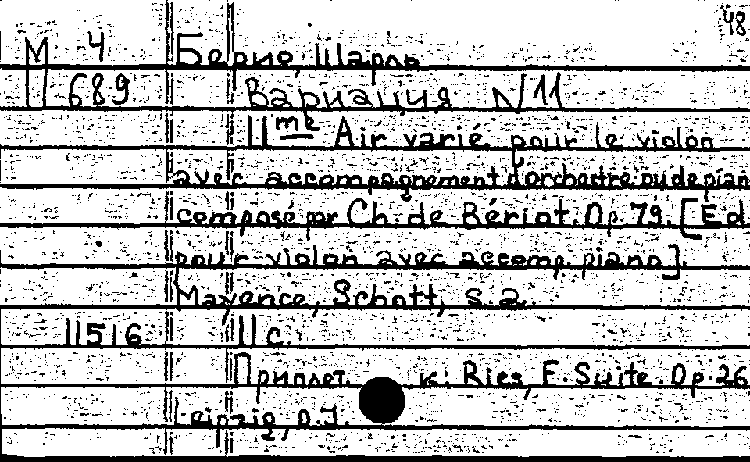 48
М 4 Берио, Шарль
689 Вариация N 11
11me Air varié pour le violon
avec accompagnement d'orchestre ou de pian
composé par Ch. de Bériot. Op. 79. [Ed.
pour violon avec accomp. piano].
Mayence, Schott, s.a.
11516 11 с.
Приплет. к: Ries, F. Suite. Op. 26
Leipzig, o.J.